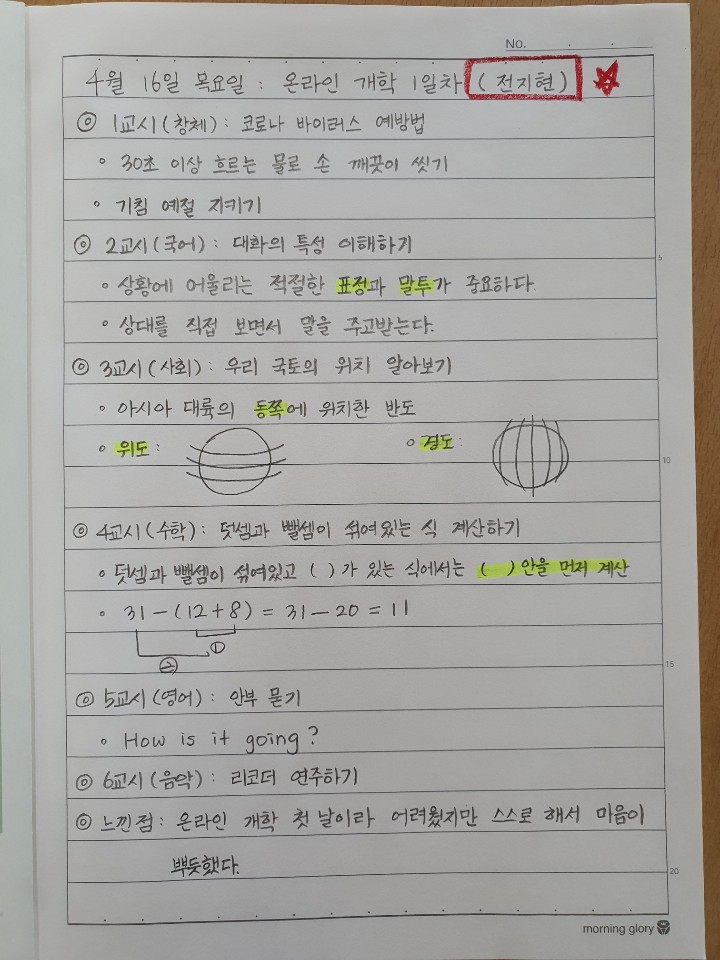 No.
4월 16일 목요일 : 온라인 개학 1일차 (전지현)
◎ 1교시(창체) : 코로나 바이러스 예방법
◦ 30초 이상 흐르는 물로 손 깨끗이 씻기
◦ 기침 예절 지키기
◎ 2교시(국어) : 대화의 특성 이해하기
5
◦ 상황에 어울리는 적절한 표정과 말투가 중요하다.
◦ 상대를 직접 보면서 말을 주고받는다.
◎ 3교시(사회) : 우리 국토의 위치 알아보기
◦ 아시아 대륙의 동쪽에 위치한 반도
◦ 위도 : ◦ 경도 :
10
◎ 4교시(수학) : 덧셈과 뺄셈이 섞여있는 식 계산하기
◦ 덧셈과 뺄셈이 섞여있고 ( )가 있는 식에서는 ( )안을 먼저 계산
◦ 31 - (12 + 8) = 31 - 20 = 11
①
②
15
◎ 5교시(영어) : 안부 묻기
◦ How is it going?
◎ 6교시(음악) : 리코더 연주하기
◎ 느낀점 : 온라인 개학 첫 날이라 어려웠지만 스스로 해서 마음이
뿌듯했다.
20
morning glory